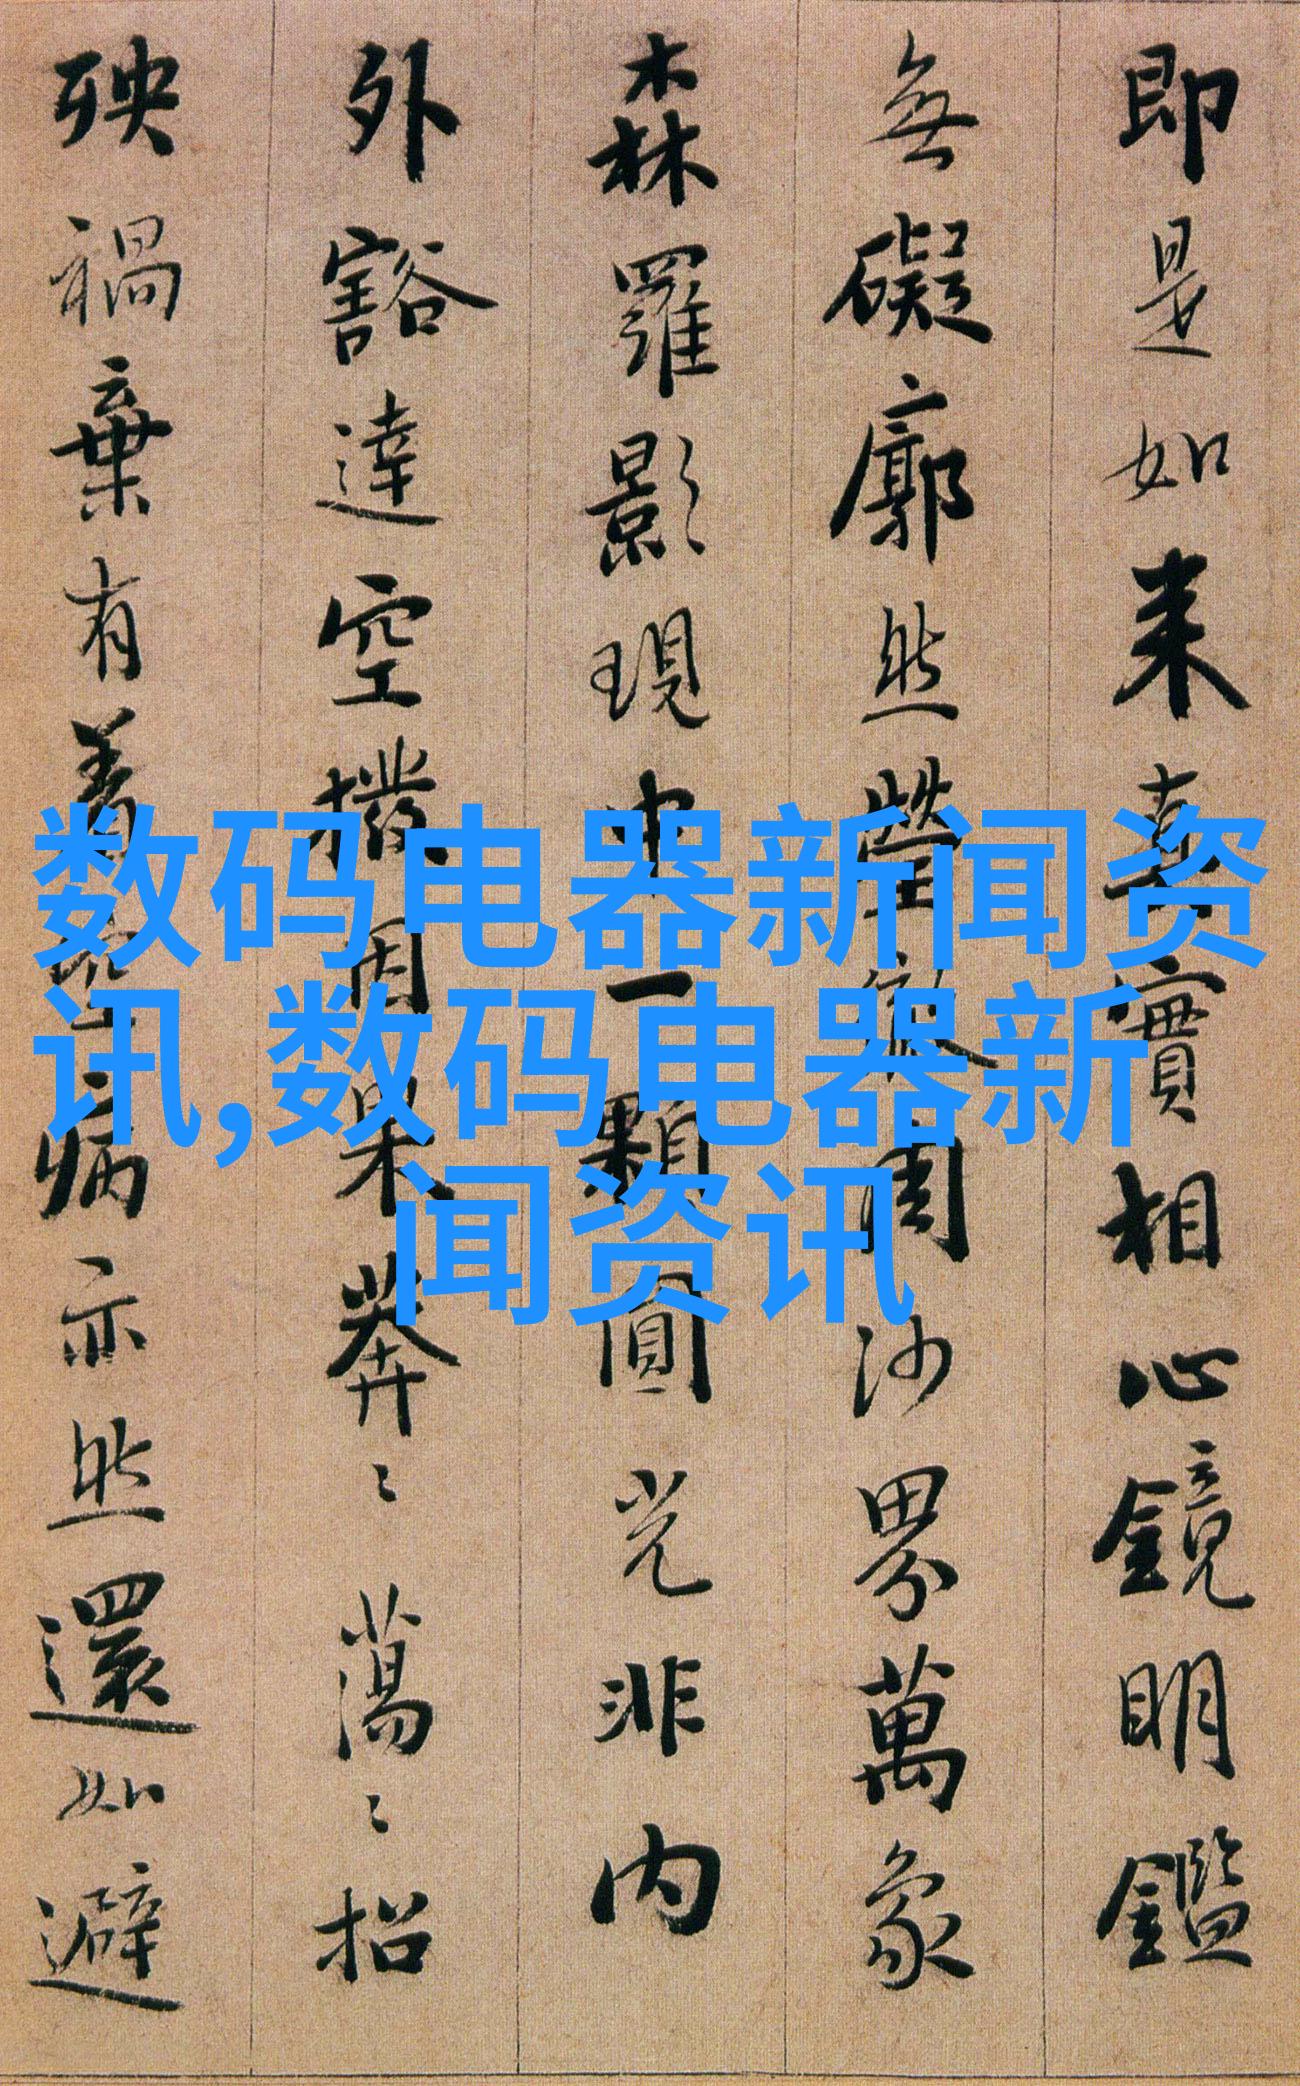 即是如来真實相心鏡明鑑
無礙廓然瑩徹周沙界萬象
森羅影現中一顆圓光非内
外豁達空撥因果莽〻蕩〻招
殃禍棄有着空病亦然還如避
数码电器新闻资
讯,数码电器新
闻资讯